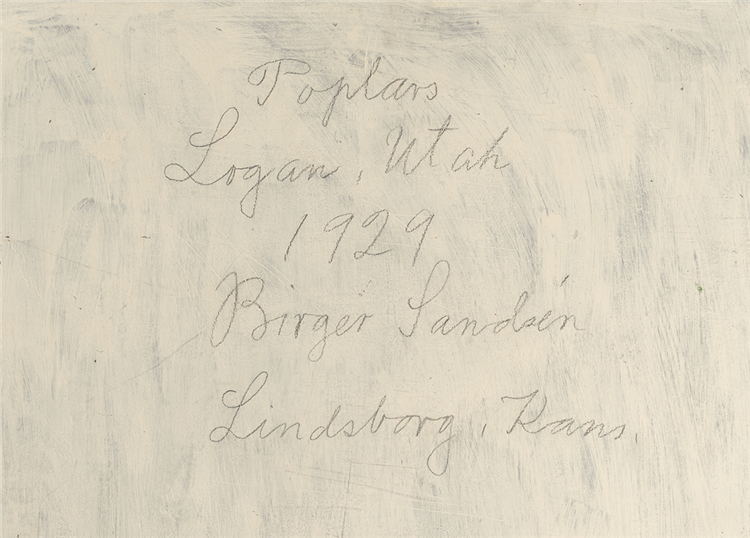 Poplars
Logan, Utah
1929
Birger Sandzén
Lindsborg, Kans.